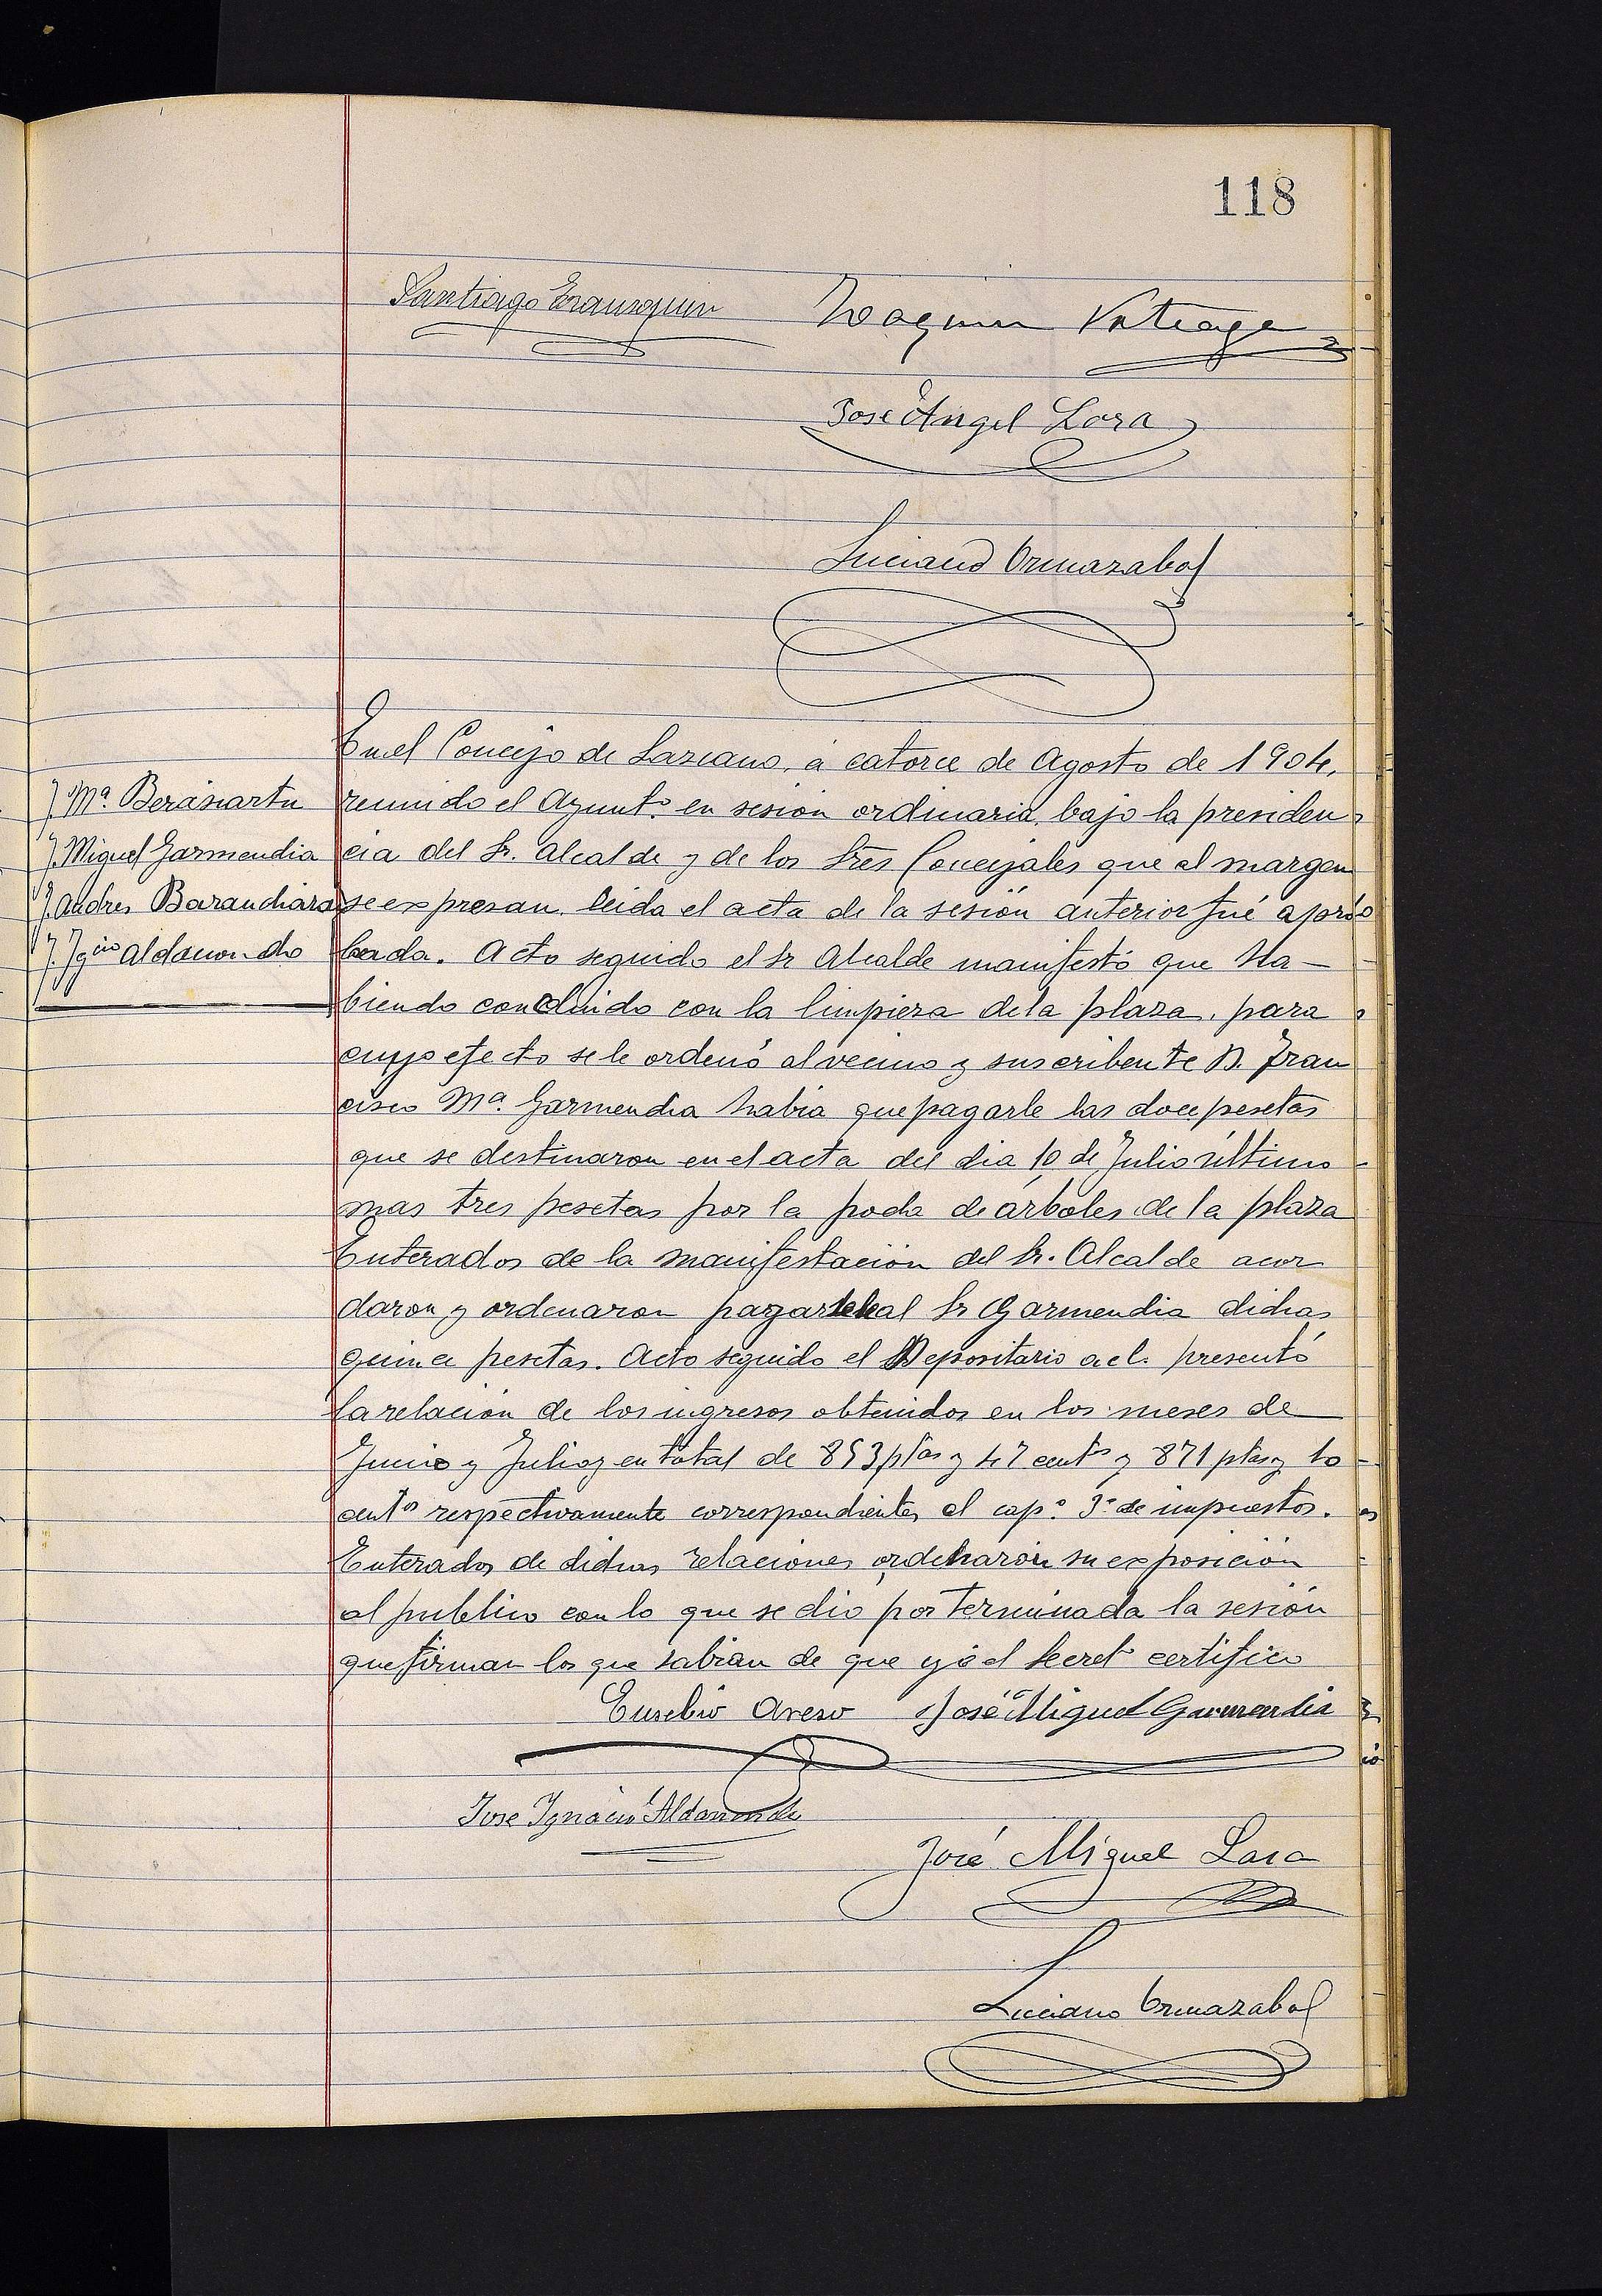 118
Santiago Erausquin
Joaquin
José Angel Lasa
Luciano Ormazabal
J. Mª. Berasiartu
J. Miguel Garmendia
J. Andres Barandiara
J. Igcio Aldasoro
En el Concejo de Lazcano, á catorce de Agosto de 1904,
reunido el Ayuntº en sesión ordinaria, bajo la presiden
cia del Sr. Alcalde y de los Sres Concejales que al margen
se expresan, leida el acta de la sesión anterior fué apro
bada. Acto seguido el Sr Alcalde manifestó que ha-
biendo concluido con la limpieza de la plaza, para
cuyo efecto se le ordenó al vecino y suscribente D. Fran
cisco Mª. Garmendia habia que pagarle las doce pesetas
que se destinaron en el acta del dia 10 de Julio último
mas tres pesetas por la poda de árboles de la plaza
Enterados de la manifestación del Sr. Alcalde acor
daron y ordenaron pagar al Sr Garmendia dichas
quince pesetas. Acto seguido el Depositario acl. presentó
la relación de los ingresos obtenidos en los meses de
Junio y Julio y en total de 853 ptas y 47 cents y 871 ptas y 10
cents respectivamente correspondientes al cap.º 3º de impuestos.
Enterados de dichas relaciones ordenaron su exposición
al publico con lo que se dio por terminada la sesión
que firman los que sabian de que yo el Secretº certifico
Eusebio José Miguel Garmendia
José Ignacio
José Miguel Lasa
Luciano Ormazabal